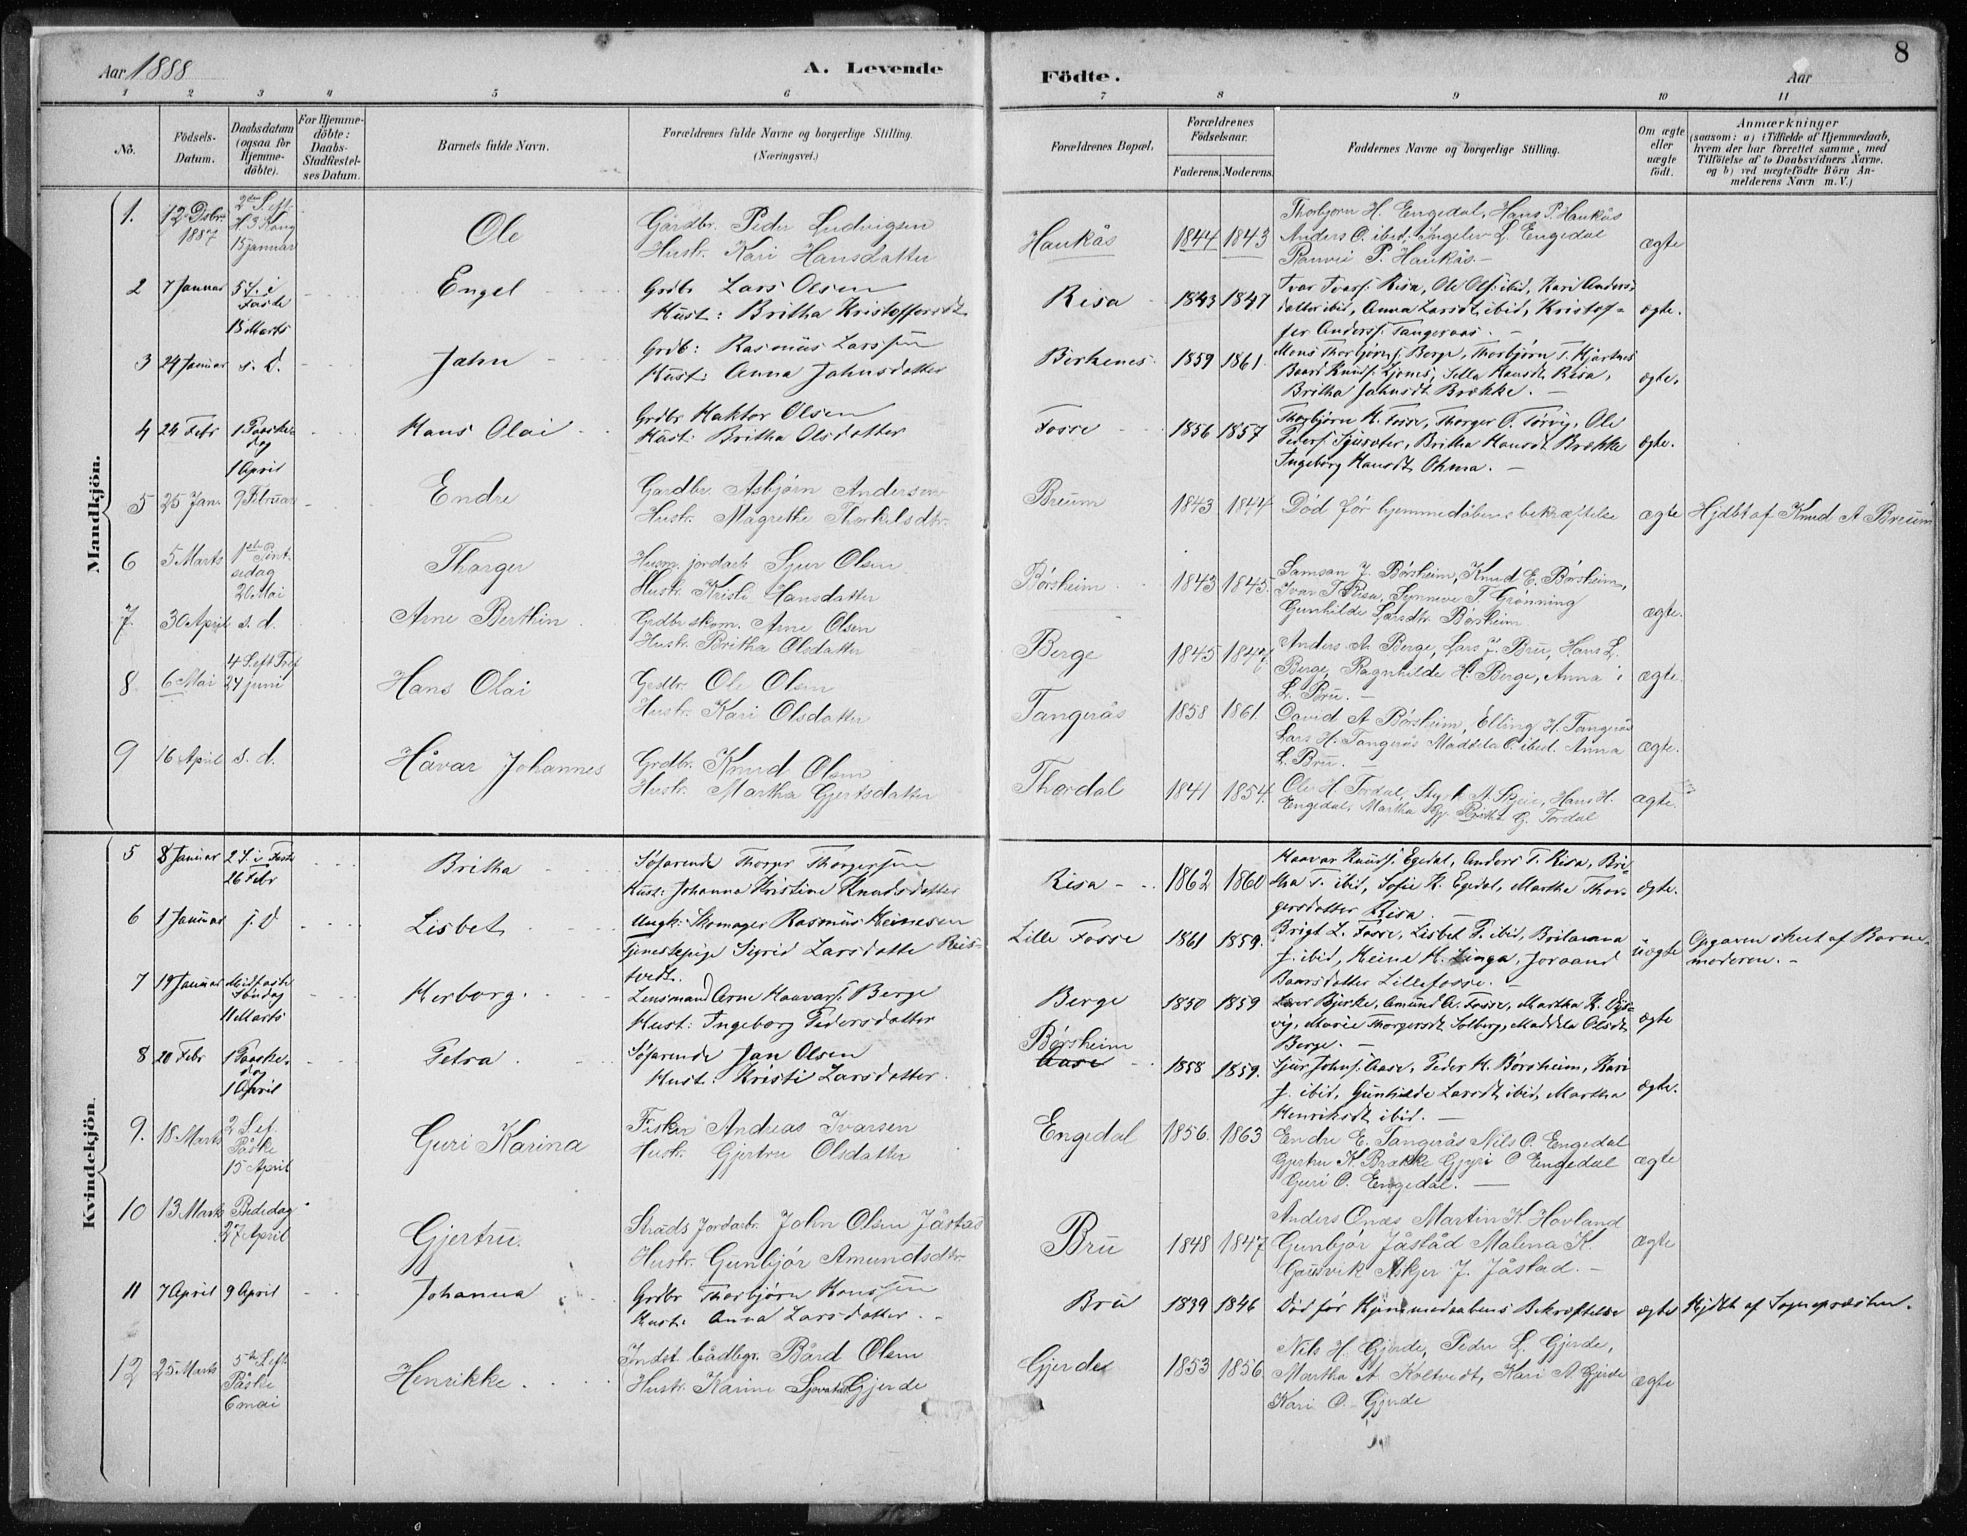 8
Aar 1888
A. Levende
Födte.
Aar
1 2 3 4 5 6 7 8 9 10 11
No.
Födsels-Datum.
Daabsdatum (ogsaa for Hjemme-döbte).
For Hjemme-döbte: Daabs-Stadfæstel-ses Datum.
Barnets fulde Navn.
Forældrenes fulde Navne og borgerlige Stilling. (Næringsvei.)
Forældrenes Bopæl.
Forældrenes Födselsaar.
Faderens. Moderens.
Faddernes Navne og borgerlige Stilling.
Om ægte eller uægte födt.
Anmærkninger
(saasom: a) i Tilfælde af Hjemmedaab, hvem der har forrettet samme, med Tilföielse af to Daabsvidners Navne, og b) ved uægtefödte Börn An-melderens Navn m.V.)
Mandkjön.
1. 12 Dsbr. 1887
2den S. eft. H. 3 Kong. 15 januar
Ole
Gårdbr. Peder Ludvigsen
Hustr. Kari Hansdatter
Haukås 1844 1843
Thorbjørn H. Engedal, Hans P. Haukås
Anders O. ibid, Ingelev L. Engedal
Ranvei P. Haukås. —
ægte
2 7 Januar
5 S. i Faste 18 Marts
Engel
Grdbr Lars Olsen
Hust: Britha Kristoffersdt
Risa 1843 1847
Ivar Ivars. Risa, Ole Ols. ibid, Kari Anders-
datter ibid, Anna Larsdt ibid, Kristof-
fer Anderss. Tangeraas. —
ægte.
3 24 Januar s. D.
Jahn
Grdb: Rasmus Larssen
Hust: Anna Jahnsdatter
Birkenes. 1859 1861.
Mons Thorbjørns. Berge, Thorbjørn T. Kjærtnes
Baard Knuds. Ljones, Silla Hansdt Risa,
Britha Jahnsdt Brække. —
ægte.
4 24 Febr
1 Paaske-dag 1 April
Hans Olai
Grdbr Haktor Olsen
Hust: Britha Olsdatter
Fosse 1856 1857
Thorbjørn H. Fosse, Thorger O. Tørvig, Ole
Peders. , Britha Hansdt Brække
Ingeborg Hansdt. —
ægte.
5 25 Jan. 9 Februar
Endre
Gardbr. Asbjørn Andersen
Hustr. Magrethe Thorkelsdtr.
Breum 1843 1844
Død før hjemmedåbens bekræftelse
ægte
Hjdbt af Knud A Breum
6 5 Marts
1ste Pint-sedag 20 Mai
Thorger
Husm. jordarb. Sjur Olsen
Hustr. Kristi Hansdatter
Børsheim 1843 1845.
Samson J. Børsheim, Knud E. Børsheim,
Ivar I. Risa, Synneve T. Grønning
Gunhilde Larsdtr. Børsheim
ægte.
7. 30 April s. d.
Arne Berthin
Grdbr skom. Arne Olsen
Hustr. Britha Olsdatter
Berge 1845 1847.
Anders A. Berge, Lars J. Bru, Hans L.
Berge, Ragnhilde H. Berge, Anna
L. Bru. —
ægte.
8 6 Mai
4 S. eft Tref 24 juni
Hans Olai
Grdbr. Ole Olsen
Hustr. Kari Olsdatter
Tangerås 1858 1861.
David A Børsheim, Elling H. Tangerås
Lars H. Tangerås Maddela O. ibid. Anna
L. Bru. —
ægte.
9 16 April s. d.
Håvar Johannes
Grdbr. Knud Olsen
Hustr. Martha Gjertsdatter
Thordal 1841 1854.
Ole H Tordal, A. Skeie, Hans H.
Engedal, Martha Gj. Britha G. Tordal
ægte.
Kvindekjön.
5 8 Januar
2 S. i Faste 26 Febr
Britha
Søfarende Thorger Thorgersen
Hust: Johanna Kristine Knudsdatter
Risa 1862 1860
Haavar Knuds. Egedal, Anders T. Risa, Bri-
tha T. ibid, Sofie K. Egedal, Martha Thor-
gersdatter Risa. —
ægte.
6 1 Januar s. D
Lisbet
Ungk: Skomager Rasmus Heinesen
Tjenestepige Sigrid Larsdatte Reis-
tvedt.
Lille Fosse 1861 1859.
Brigt L. Fosse, Lisbet P. ibid, Britanna
J. ibid, Heine H. Linga, Joraand
Baarsdatter Lillefosse. —
uægte
Opgaven skeet af Barne-
moderen. —
7 19 Januar
Midfaste Søndag 11 Marts
Herborg.
Lensmand Arne Haavars. Berge
Hust: Ingeborg Pedersdatter
Berge 1850 1859
Iver Bjerke, Amund A. Fosse, Martha K.
vig, Marie Thorgersdt Solberg, Maddela Olsdt
Berge. —
ægte
8 20 Febr
1 Paaske-dag 1 April
Petra
Søfarende Jan Olsen
Hust: Kristi Larsdatter.
Børsheim
Aase 1858 1859.
Sjur Johns. Aase, Peder H. Børsheim, Kari
J. ibid, Gunhilde Larsdt ibid, Martha
Henriksdt ibid. —
ægte.
9. 18 Marts
2 S. ef. Påske 15 April
Guri Karina
Fisker Andreas Ivarsen
Hustr. Gjertru Olsdatter
Engedal 1856. 1863
Endre E. Tangerås Nils O. Engedal
Gjertru K. Brække Gjyri O Engedal
Guri O. Engedal. —
ægte
10 13 Marts
Bededag 27 April
Gjertru.
Strads Jordarb. John Olsen Jåstad
Hustr. Gunbjør Amundsdtr.
Bru 1848 1847
Anders Onæs Martin K. Hovland
Gunbjør Jåståd Malena K.
Gausvik Askjer J. Jåstad. —
ægte
11 7 April 9 April
Johanna
Grdbr Thorbjørn Hanssen
Hust: Anna Larsdatter.
Bru 1839 1846
Død før Hjemmedaabens Bekræftelse
ægte
Hjdbt af Sognepræsten.
12 25 Marts
5te S. eft Påske 6 mai
Henrikke.
Indst bådbgr. Bård Olsen
Hustr. Karine Gjerde
Gjerde 1853 1856.
Nils H. Gjerde, Peder L. Gjerde,
Martha A. Koltvedt, Kari A Gjerde
Kari O. Gjerde
ægte